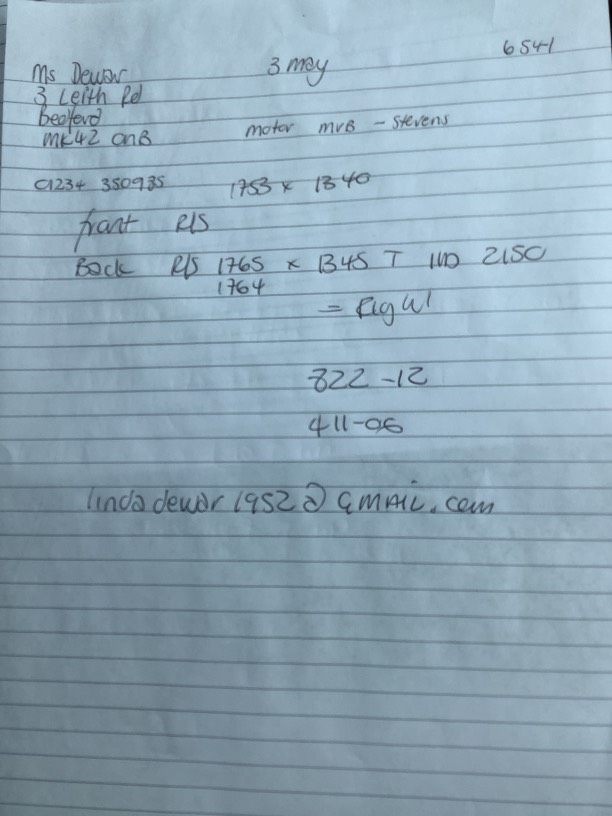 6541
Ms Dewar 3 may
3 Leith Rd
bedford
MK42 0nB motor mvB - Stevens
01234 350935 1753 x 1340
front R/S
Back R/S 1765 x 1345 T 2150
1764
=
822-12
411-06
lindadewar1952@GMAIL.com